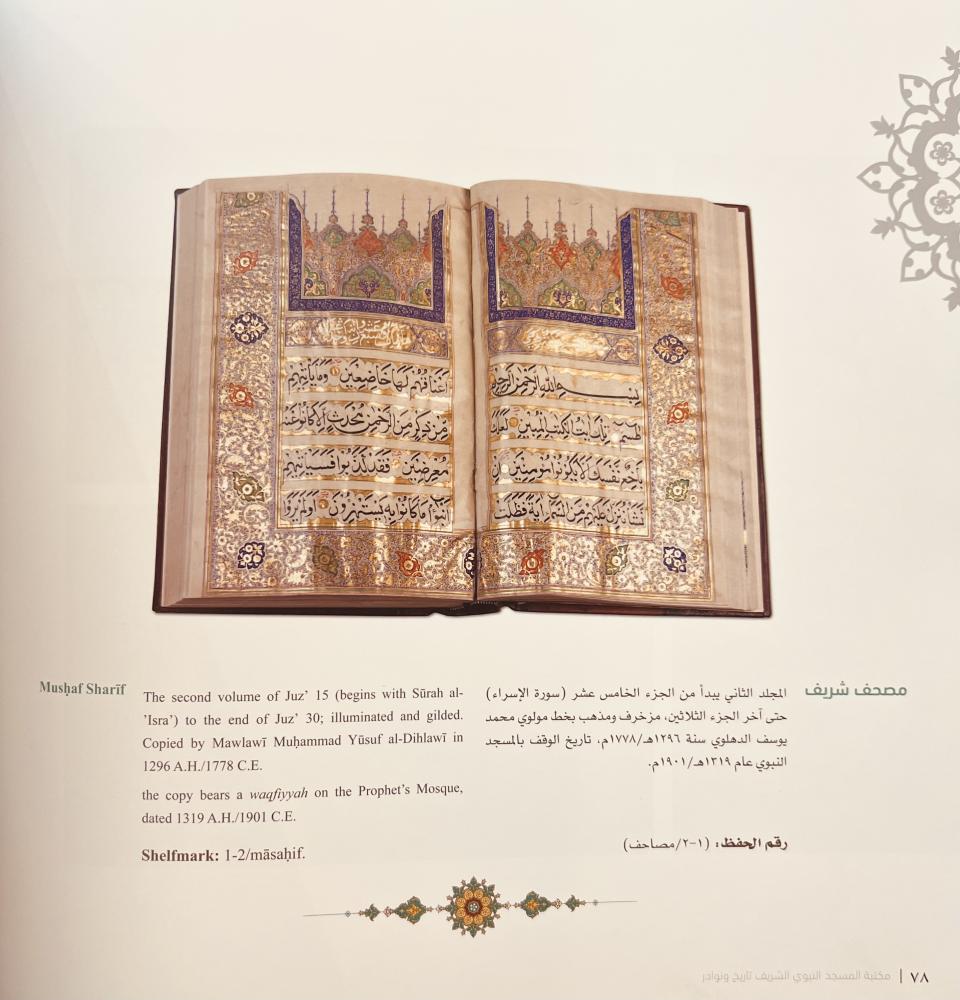 بِسْمِ اللهِ الرَّحْمٰنِ الرَّحِيْمِ
طٰسٓمّٓ تِلْكَ اٰيٰتُ الْكِتٰبِ الْمُبِيْنِ لَعَلَّكَ
بَاخِعٌ نَّفْسَكَ اَلَّا يَكُوْنُوْا مُؤْمِنِيْنَ اِنْ
نَّشَأْ نُنَزِّلْ عَلَيْهِمْ مِّنَ السَّمَآءِ اٰيَةً فَظَلَّتْ
اَعْنَاقُهُمْ لَهَا خَاضِعِيْنَ وَمَا يَأْتِيْهِمْ
مِّنْ ذِكْرٍ مِّنَ الرَّحْمٰنِ مُحْدَثٍ اِلَّا كَانُوْا عَنْهُ
مُعْرِضِيْنَ فَقَدْ كَذَّبُوْا فَسَيَأْتِيْهِمْ
اَنْبٰٓؤُا مَا كَانُوْا بِهٖ يَسْتَهْزِؤُنَ اَوَلَمْ يَرَوْا
مصحف شريف
المجلد الثاني يبدأ من الجزء الخامس عشر (سورة الإسراء)
حتى آخر الجزء الثلاثين، مزخرف ومذهب بخط مولوي محمد
يوسف الدهلوي سنة ١٢٩٦هـ/١٧٧٨م، تاريخ الوقف بالمسجد
النبوي عام ١٣١٩هـ/١٩٠١م.
رقم الحفظ: (١-٢/مصاحف)
Muṣḥaf Sharīf
The second volume of Juz’ 15 (begins with Sūrah al-
’Isra’) to the end of Juz’ 30; illuminated and gilded.
Copied by Mawlawī Muḥammad Yūsuf al-Dihlawī in
1296 A.H./1778 C.E.
the copy bears a waqfiyyah on the Prophet’s Mosque,
dated 1319 A.H./1901 C.E.
Shelfmark: 1-2/māsaḥif.
٧٨ | مكتبة المسجد النبوي الشريف تاريخ ونوادر